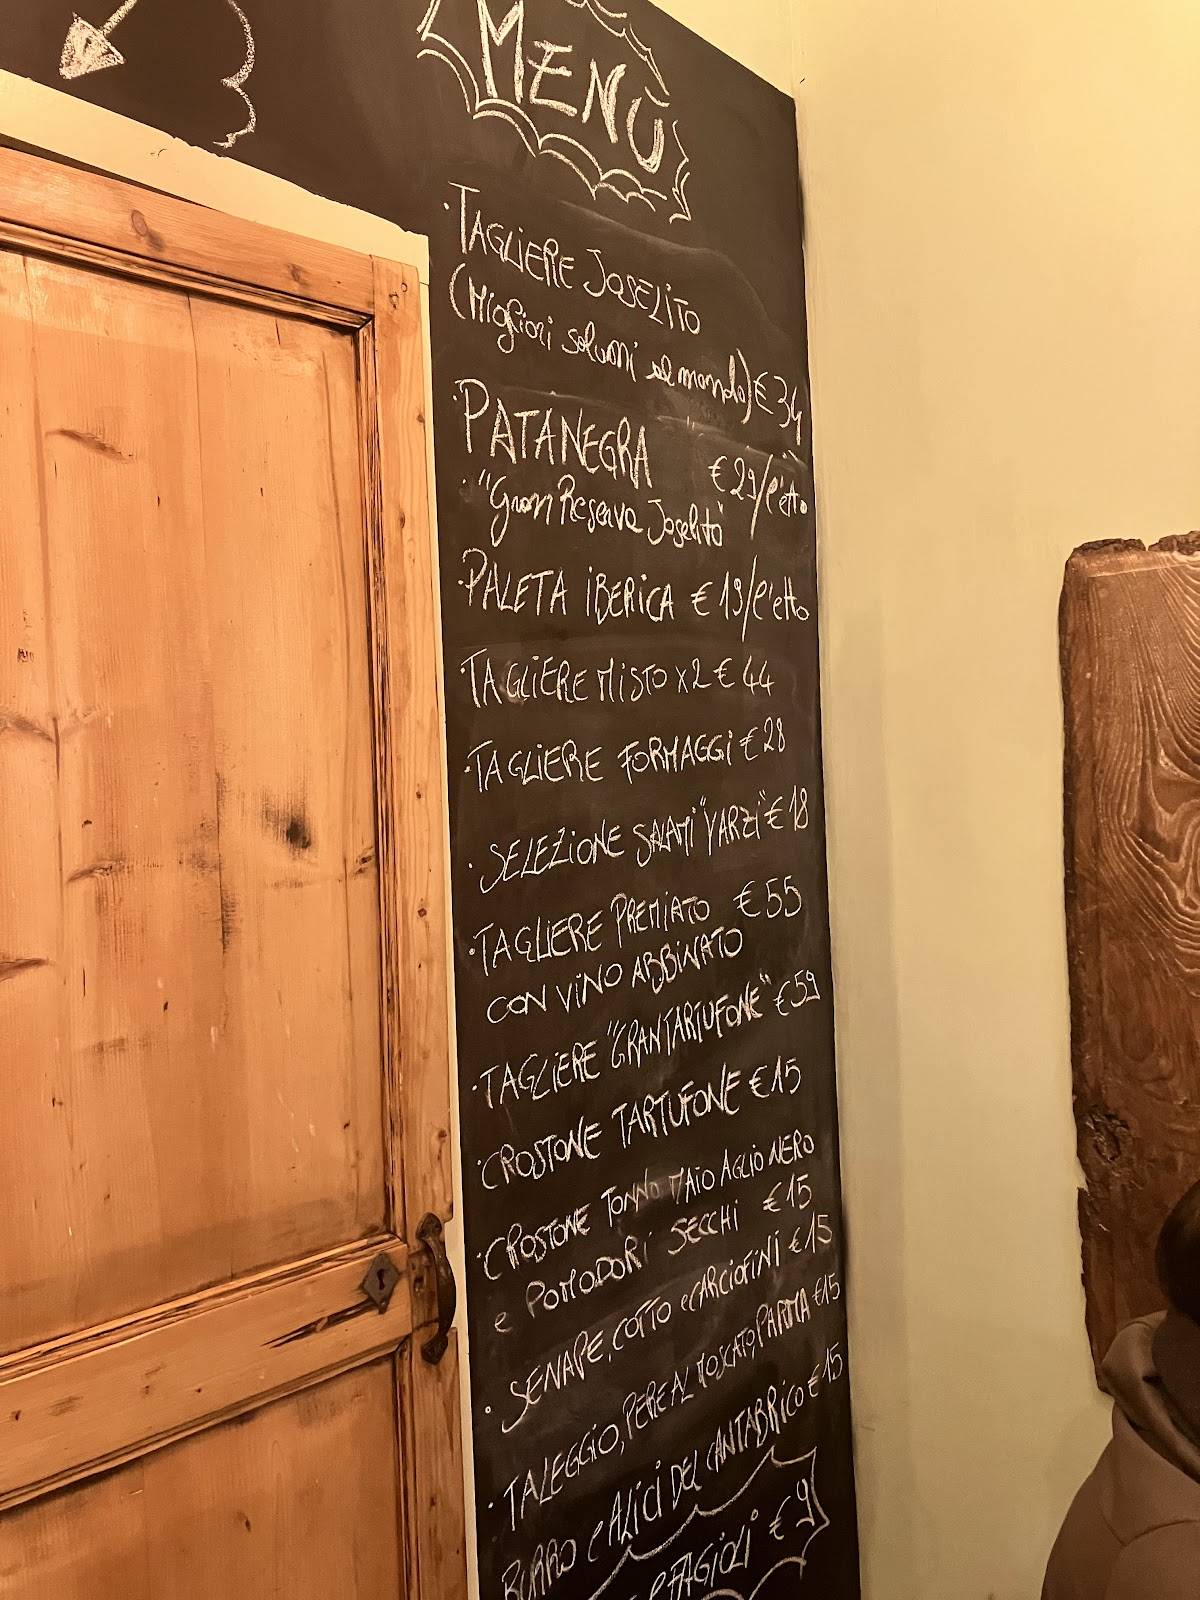 MENÙ
· TAGLIERE JOSELITO
(Migliori salumi al mondo) € 34
· PATANEGRA € 29/l'etto
· "Gran Reserva Joselito"
· PALETA IBERICA € 19/l'etto
· TAGLIERE MISTO x2 € 44
· TAGLIERE FORMAGGI € 28
· SELEZIONE SALAMI "VARZI" € 18
· TAGLIERE PREMIATO € 55
CON VINO ABBINATO
· TAGLIERE "GRANTARTUFONE" € 59
· CROSTONE TARTUFONE € 15
· CROSTONE TONNO MAIO AGLIO NERO
e POMODORI SECCHI € 15
· SENAPE, COTTO e CARCIOFINI € 15
· TALEGGIO, PERE AL MOSCATO, PARMA € 15
BURRO e ALICI DEL CANTABRICO € 15
e FAGIOLI € 9